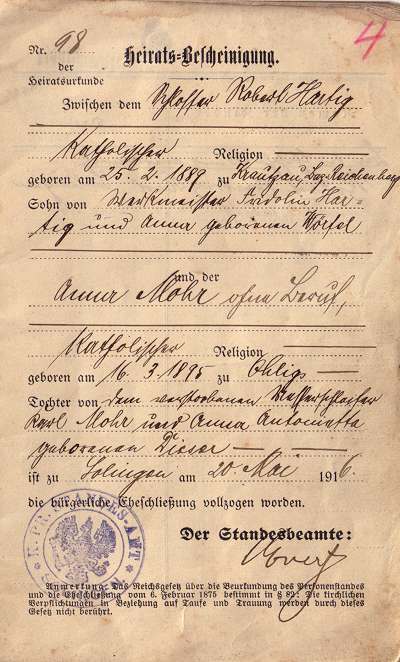 4
Nr. 98 Heirats-Bescheinigung.
der
Heiratsurkunde
Zwischen dem Schlosser Robert Hartig
Katholischer Religion
geboren am 25. 2. 1889 zu Krautzau, Bez. Reichenberg
Sohn von Werkmeister Fridolin Har-
tig und Anna geborenen Worfel
und der
Anna Mohr ohne Beruf,
Katholischer Religion
geboren am 16. 3. 1895 zu Ohligs
Tochter von dem verstorbenen
Karl Mohr und Anna Antonetta
geborenen Dieser
ist zu Solingen am 20 Mai 1916.
die bürgerliche Eheschließung vollzogen worden.
Der Standesbeamte:
K. PR. STANDES-AMT
Anmerkung. Das Reichsgesetz über die Beurkundung des Personenstandes
und die Eheschließung vom 6. Februar 1875 bestimmt in § 82: Die kirchlichen
Verpflichtungen in Beziehung auf Taufe und Trauung werden durch dieses
Gesetz nicht berührt.